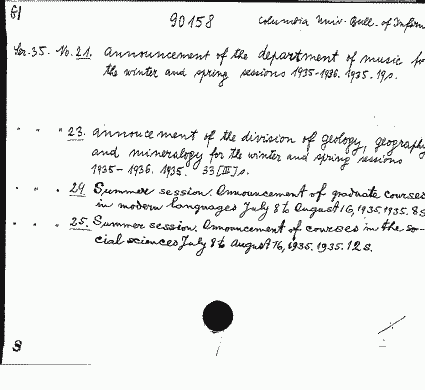 61
90158 Columbia Univ. Bull. of Inform
Ser. 35. No. 21. Announcement of the department of music fo
the winter and spring sessions 1935-1936. 1935. 19 s.
" " " 23. announcement of the division of geology, geography
and mineralogy for the winter and spring sessions
1935-1936. 1935. 33 [III] s.
" " " 24. Summer session. Announcement of graduate courses
in modern languages July 8 to August 16, 1935. 1935. 8 s
" " " 25. Summer session. Announcement of courses in the so-
cial sciences July 8 to August 16, 1935. 1935. 12 s.